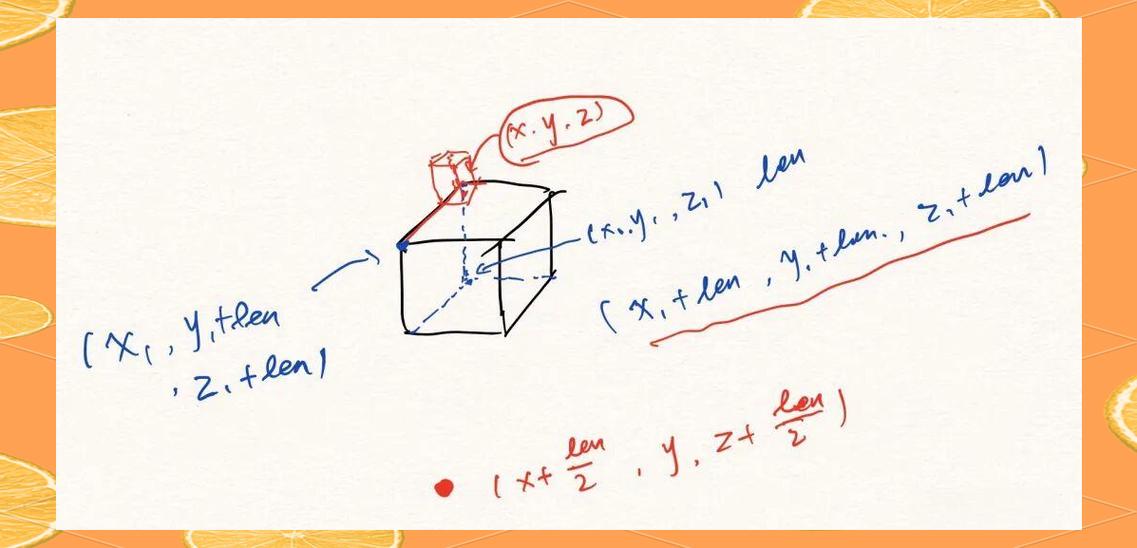 (x.y.z)
(x₁.y₁,z₁) len
(x₁+len, y₁+len., z₁+len)
(x₁, y₁+len
, z₁+len)
(x+len/2, y, z+len/2)